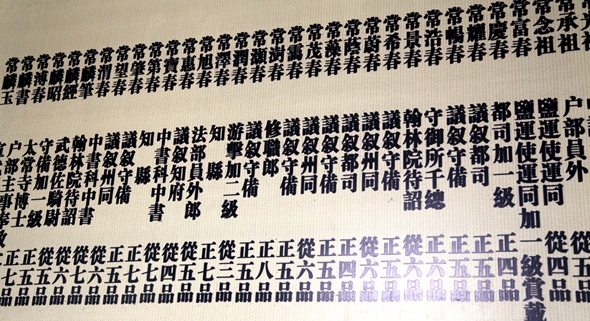 常承祖
常念祖
常富春
常慶春
常耀春
常暢春
常浩春
常景春
常希春
常蔚春
常蔭春
常藻春
常茂春
常霈春
常澍春
常灝春
常潤春
常澤春
常旭春
常惠春
常寶春
常第春
常肇春
常望春
常渭春
常麟筆
常麟經
常麟昭
常溥春
常麟書
常麟玉
户部員外 正五品
鹽運使運同 從四品
鹽運使運同加一級賞戴
都司加一級 正四品
議叙都司 正五品
議叙守備 正五品
守御所千總 正六品
翰林院待詔 從六品
議叙守備 正五品
議叙州同 從六品
議叙都司 正四品
議叙守備 正五品
議叙州同 從六品
議叙守備 正五品
修職郎 正八品
議叙守備 正五品
游擊加二級 從三品
知縣 正七品
法部員外郎 正五品
議叙知府 從四品
中書科中書 從七品
知縣 正七品
議叙守備 正五品
議叙州同 從六品
中書科中書 從七品
翰林院待詔 從六品
武德佐騎尉 正五品
守備加一級 正五品
太常寺博士 正七品
户部主事奉政